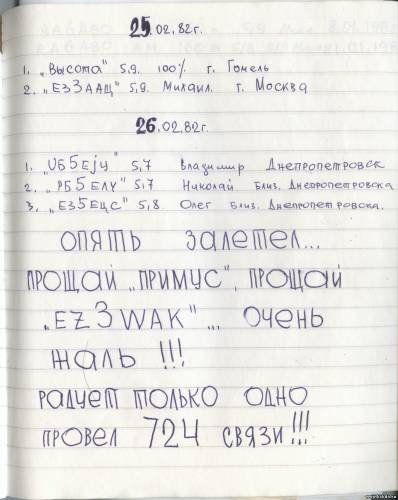 25.02.82г.
1. „Высота" 5,9. 100% г. Гомель
2. „ЕЗЗААЩ" 5.9. Михаил. г. Москва
26.02.82г.
1. „UБ5ЕjЧ" 5,7 Владимир Днепропетровск
2. „РБ5ЕЛУ" 5,7 Николай Близ. Днепропетровска
3. „ЕЗ5ЕЦС" 5,8 Олег Близ. Днепропетровска.
ОПЯТЬ ЗАЛЕТЕЛ...
ПРОЩАЙ „ПРИМУС", ПРОЩАЙ
„EZ3WAK"... ОЧЕНЬ
ЖАЛЬ !!!
РАДУЕТ ТОЛЬКО ОДНО
ПРОВЕЛ 724 СВЯЗИ!!!